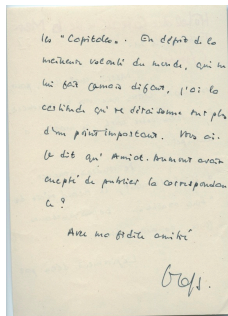 les "Capitales". En dépit de la
meilleure volonté du monde, qui ne
lui fait jamais défaut, j'ai la
certitude qu'il se désisterait sur plus
d'un point important. Vous ai-
je dit qu'Amiot-Dumont avait
accepté de publier la correspondan
ce ?
Avec ma fidèle amitié